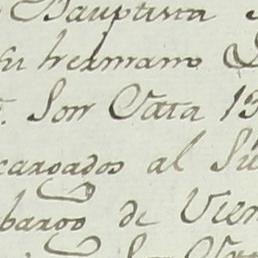 Bauptista
su hermano
Son Cata 13
cargados al Su
bargo de Vien